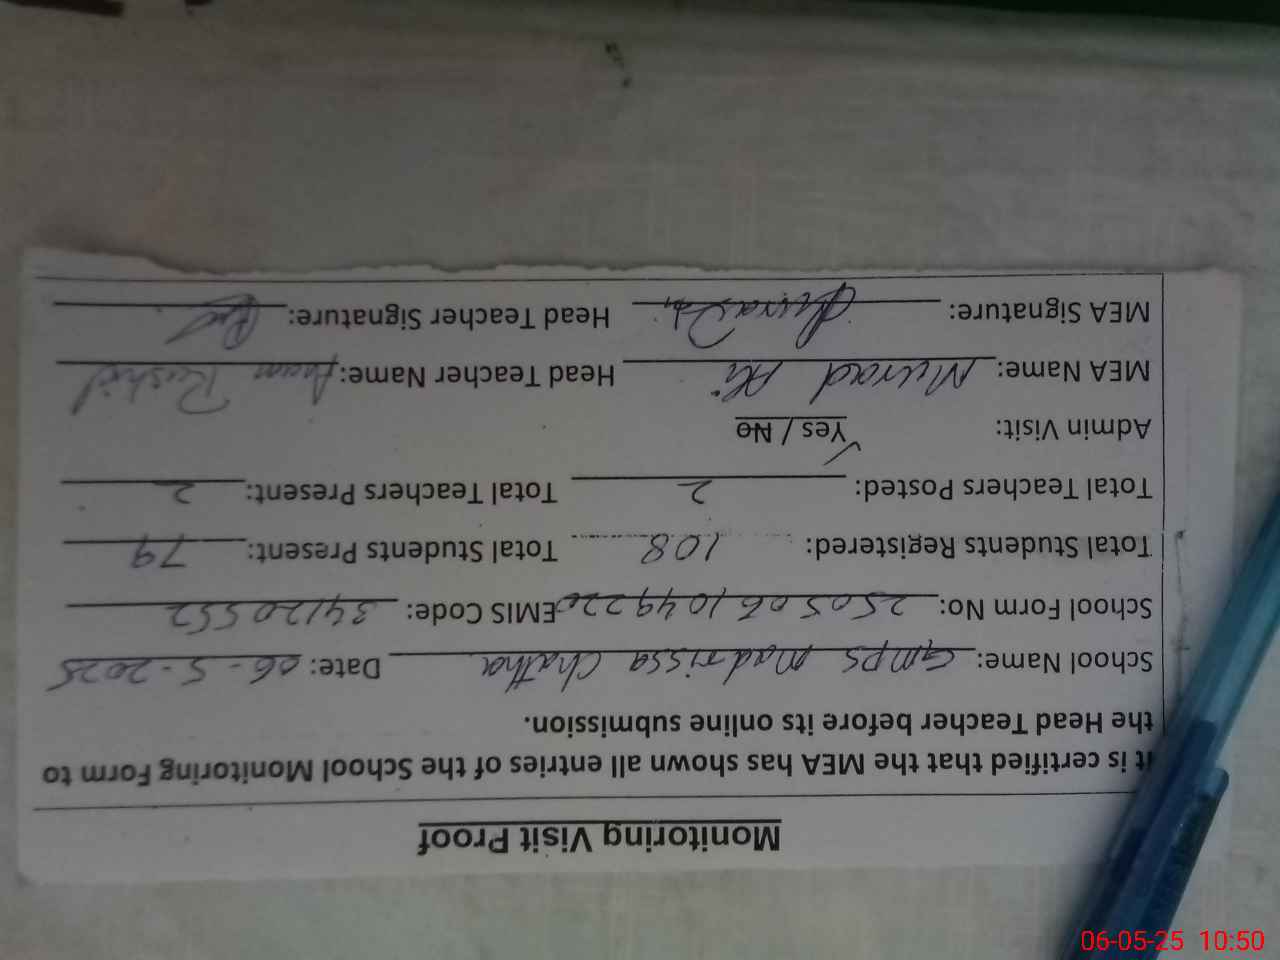 Monitoring Visit Proof
It is certified that the MEA has shown all entries of the School Monitoring Form to
the Head Teacher before its online submission.
School Name: GMPS Madrissa Chatha Date: 06-5-2025
School Form No: 250506104922 EMIS Code: 34120552
Total Students Registered: 108 Total Students Present: 79
Total Teachers Posted: 2 Total Teachers Present: 2
Admin Visit: Yes / No
MEA Name: Murad Ali Head Teacher Name: Anam Rashid
MEA Signature: Head Teacher Signature:
06-05-25 10:50